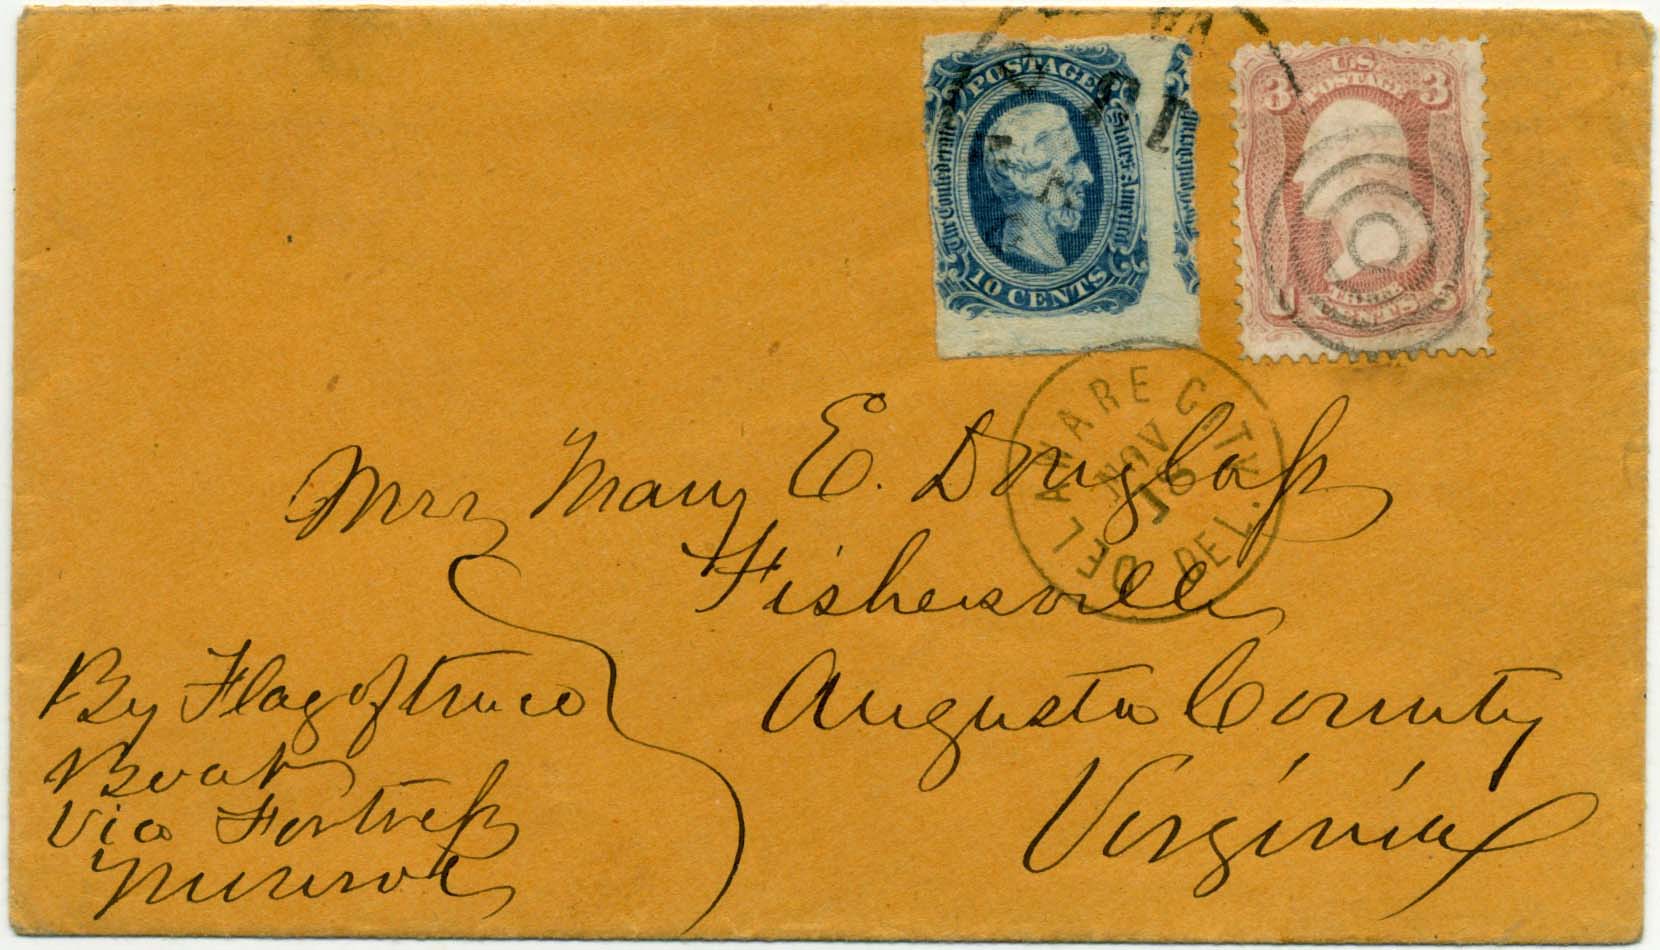 POSTAGE
The Confederate States of America
10 CENTS
U.S.
POSTAGE
3 3
CENTS
DELAWARE CITY DEL.
NOV
18
Mrs Mary E. Douglass
Fishersville
Augusta County
Virginia
By Flag of truce
Boat
Via Fortress
Munroe